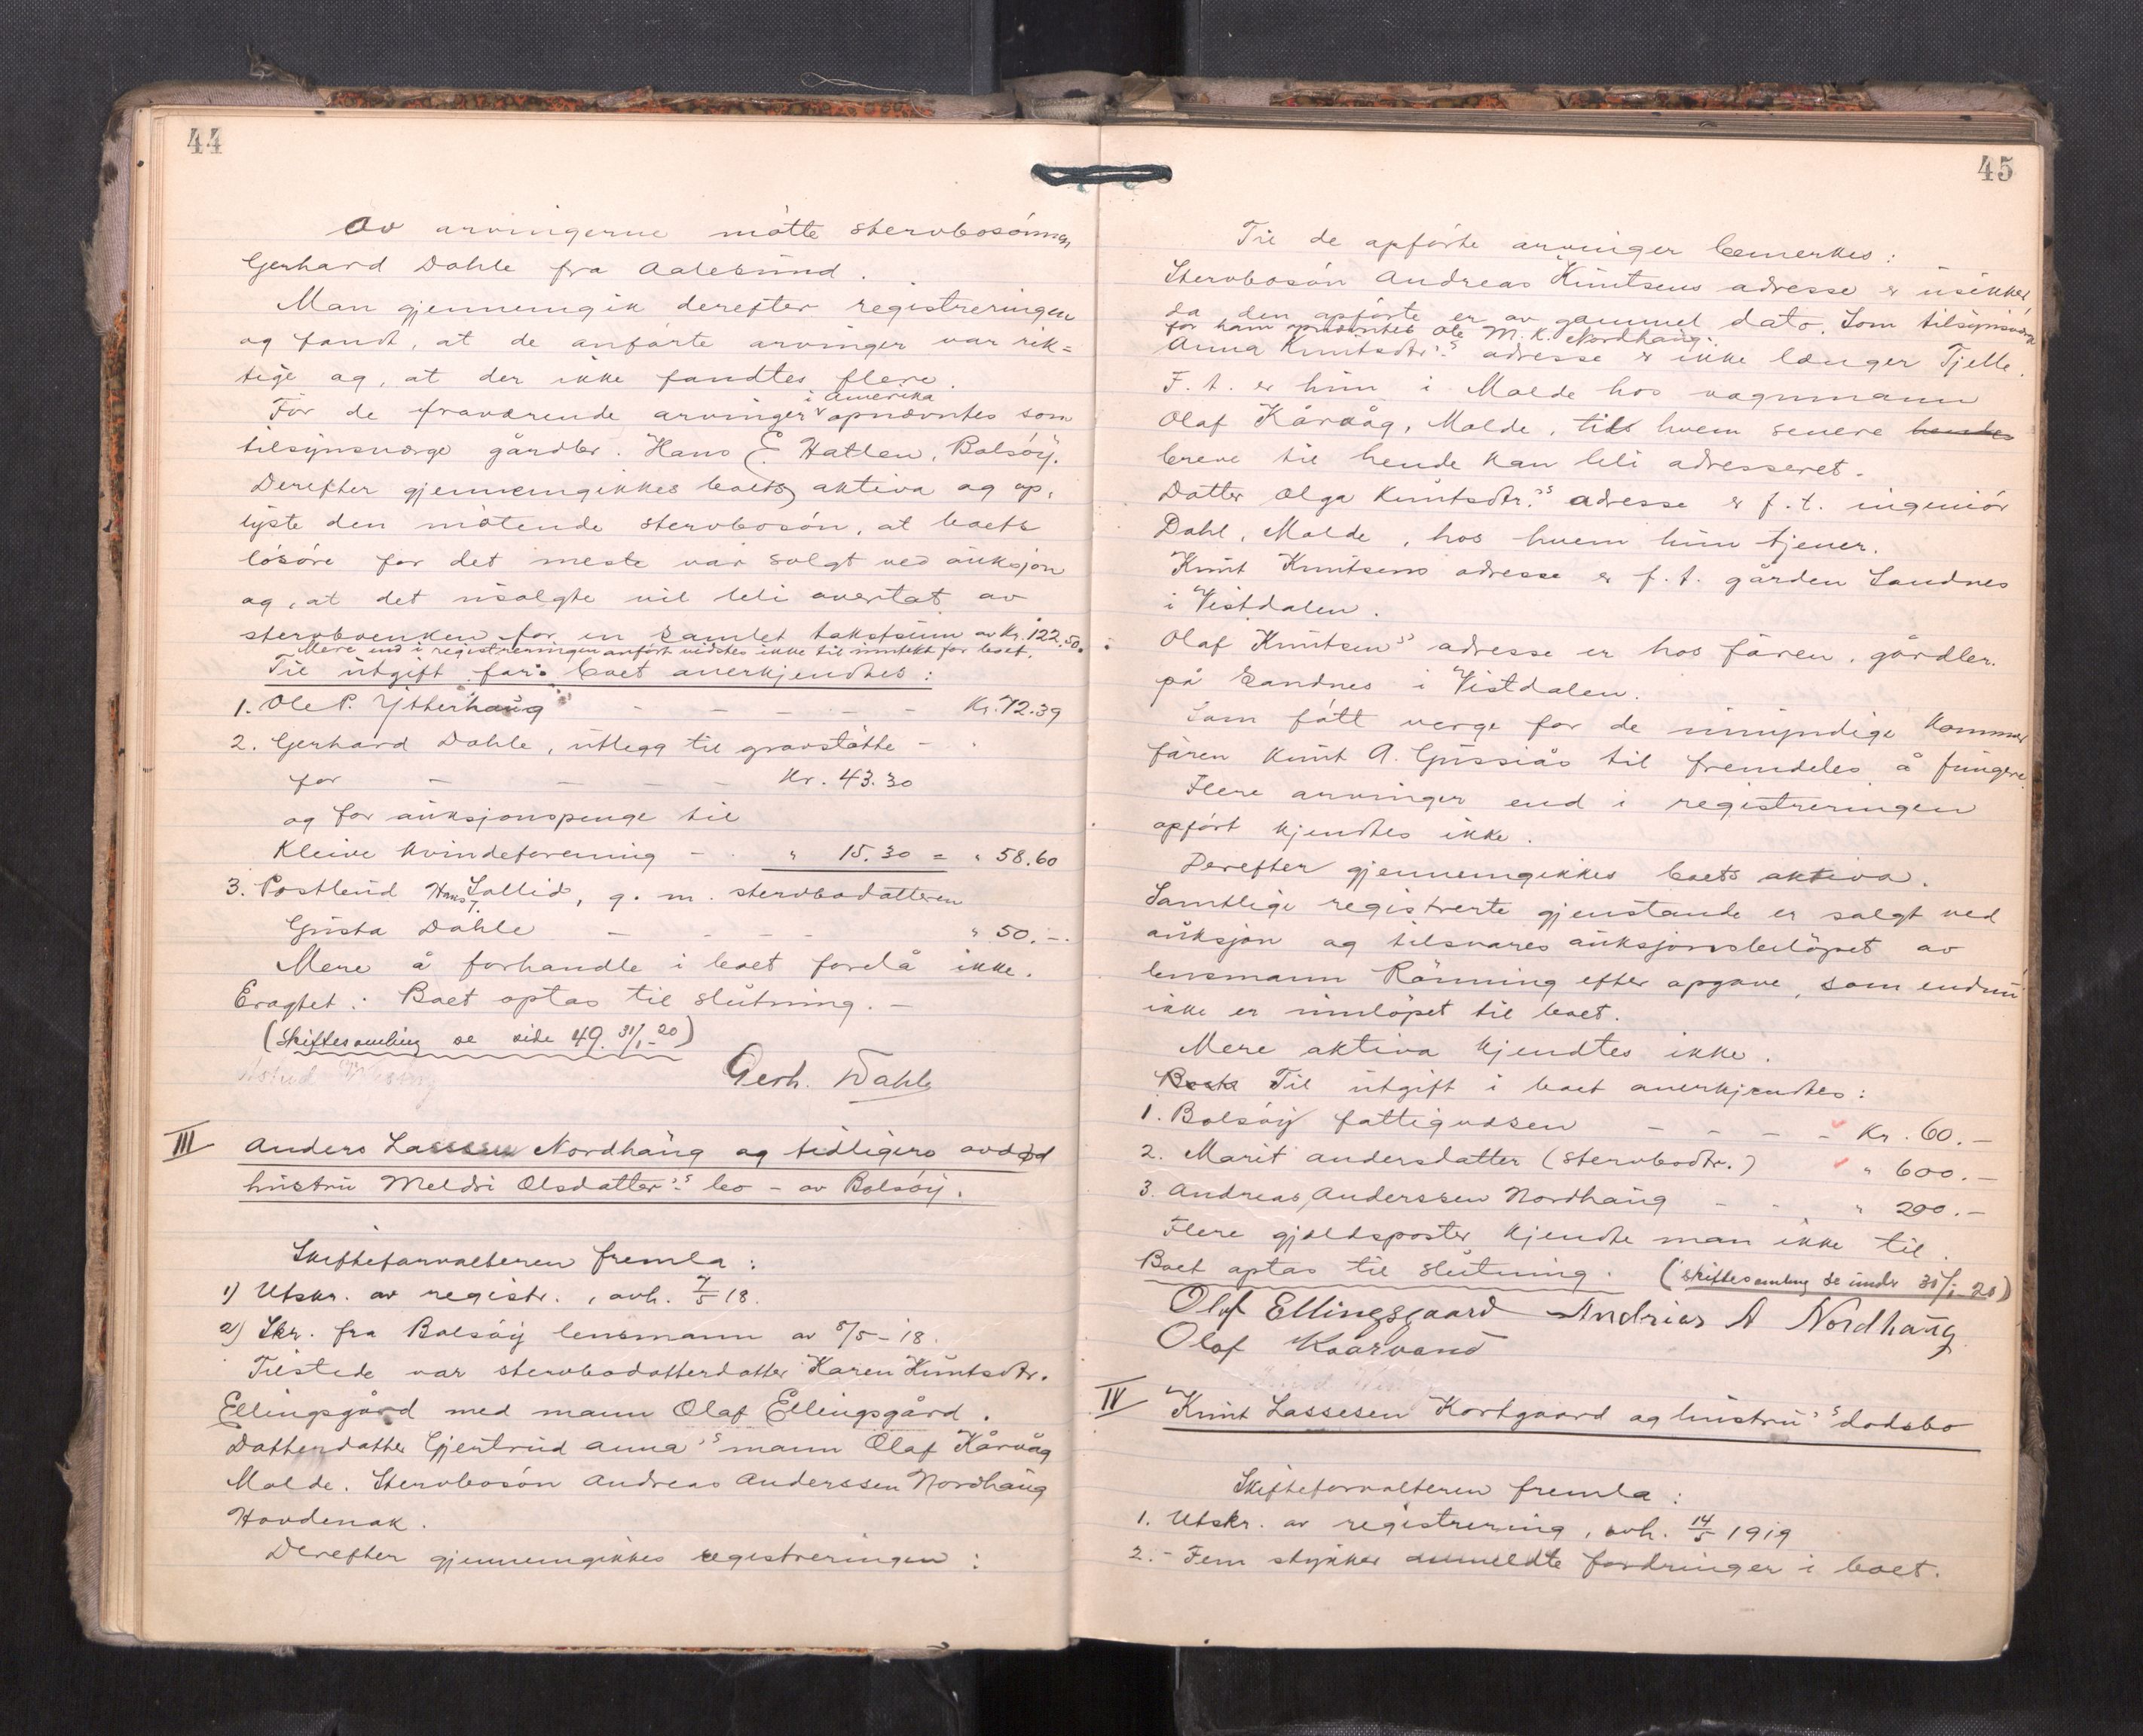 44
Av arvingerne møtte stervbosønnen
Gerhard Dahle fra Aalesund.
Man gjennemgik derefter registreringen
og fandt, at de anførte arvinger var rik-
tige og, at der ikke fandtes flere.
For de fraværende arvinger i Amerika opnævntes som
tilsynsverge gårdbr. Hans E. Hatlen, Bolsøy.
Derefter gjennemgikkes boets aktiva og op-
lyste den møtende stervbosøn, at boets
løsøre for det meste var solgt ved auksjon
og, at det usolgte vil bli overtat av
stervboenken for en samlet takstsum av Kr. 122.50.
Mere end i registreringen anført vidstes ikke til inntekt for boet.
Til utgift for boet anerkjendtes:
1. Ole P. Ytterhaug - - - - - Kr. 72.39
2. Gerhard Dahle, utlegg til gravstøtte -
for - - - - Kr. 43.30
og for auksjonspenge til
Kleive kvindeforening - - " 15.30 = " 58.60
3. Postbud Hans T. Sollid, g. m. stervbodatteren
Gusta Dahle - - - - " 50.-
Mere å forhandle i boet forelå ikke.
Eragtet: Boet optas til slutning. -
(Skiftesamling se side 49. 31/1-20)
Gerh. Dahle
III Anders Lassesen Nordhaug og tidligere avdød
hustru Meldri Olsdatter's bo - av Bolsøy.
Skifteforvalteren fremla:
1) Utskr. av registr., avh. 7/5 18.
2) Skr. fra Bolsøy lensmann av 8/5-18.
Tilstede var stervbodatterdatter Karen Knutsdtr.
Ellingsgård med mann Olaf Ellingsgård.
Datterdatter Gjertrud Anna's mann Olaf Kårvåg
Molde. Stervbosøn Andreas Anderssen Nordhaug
Hovdenak.
Derefter gjennemgikkes registreringen:
45
Til de opførte arvinger bemerkes:
Stervbosøn Andreas Knutsens adresse er usikker,
da den opførte er av gammel dato. Som tilsynsverge
for ham opnævntes Ole M. K. Nordhaug.
Anna Knutsdtr's adresse er ikke længer Tjelle.
F. t. er hun i Molde hos vognmann
Olaf Kårvåg, Molde, till hvem senere hendes
breve til hende kan bli adresseret.
Datter Olga Knutsdtr.'s adresse er f. t. ingeniør
Dahl, Molde, hos hvem hun tjener.
Knut Knutsens adresse er f. t. gården Sandnes
i Vistdalen.
Olaf Knutsen's adresse er hos faren, gårdbr.
på Sandnes i Vistdalen.
Som fått verge for de umyndige kommer
faren Knut A. Gussiås til fremdeles å fungere.
Flere arvinger end i registreringen
opført kjendtes ikke.
Derefter gjennemgikkes boets aktiva.
Samtlige registrerte gjenstande er solgt ved
auksjon og tilsvares auksjonsbeløpet av
lensmann Rønning efter opgave, som endnu
ikke er innløpet til boet.
Mere aktiva kjendtes ikke.
Til utgift i boet anerkjendtes:
1. Bolsøy fattigvæsen - - - - Kr. 60.-
2. Marit Andersdatter (stervbodtr.) " 600.-
3. Andreas Anderssen Nordhaug - - " 200.-
Flere gjeldsposter kjendte man ikke til.
Boet optas til slutning. (Skiftesamling se under 30/1-20)
Olaf Ellingsgaard Andrias A Nordhaug
Olaf Kaarvand
IV Knut Lassesen Kortgaard og hustru's dødsbo
Skifteforvalteren fremla:
1. Utskr. av registrering, avh. 14/5 1919
2.- Fem stykker anmeldte fordringer i boet.